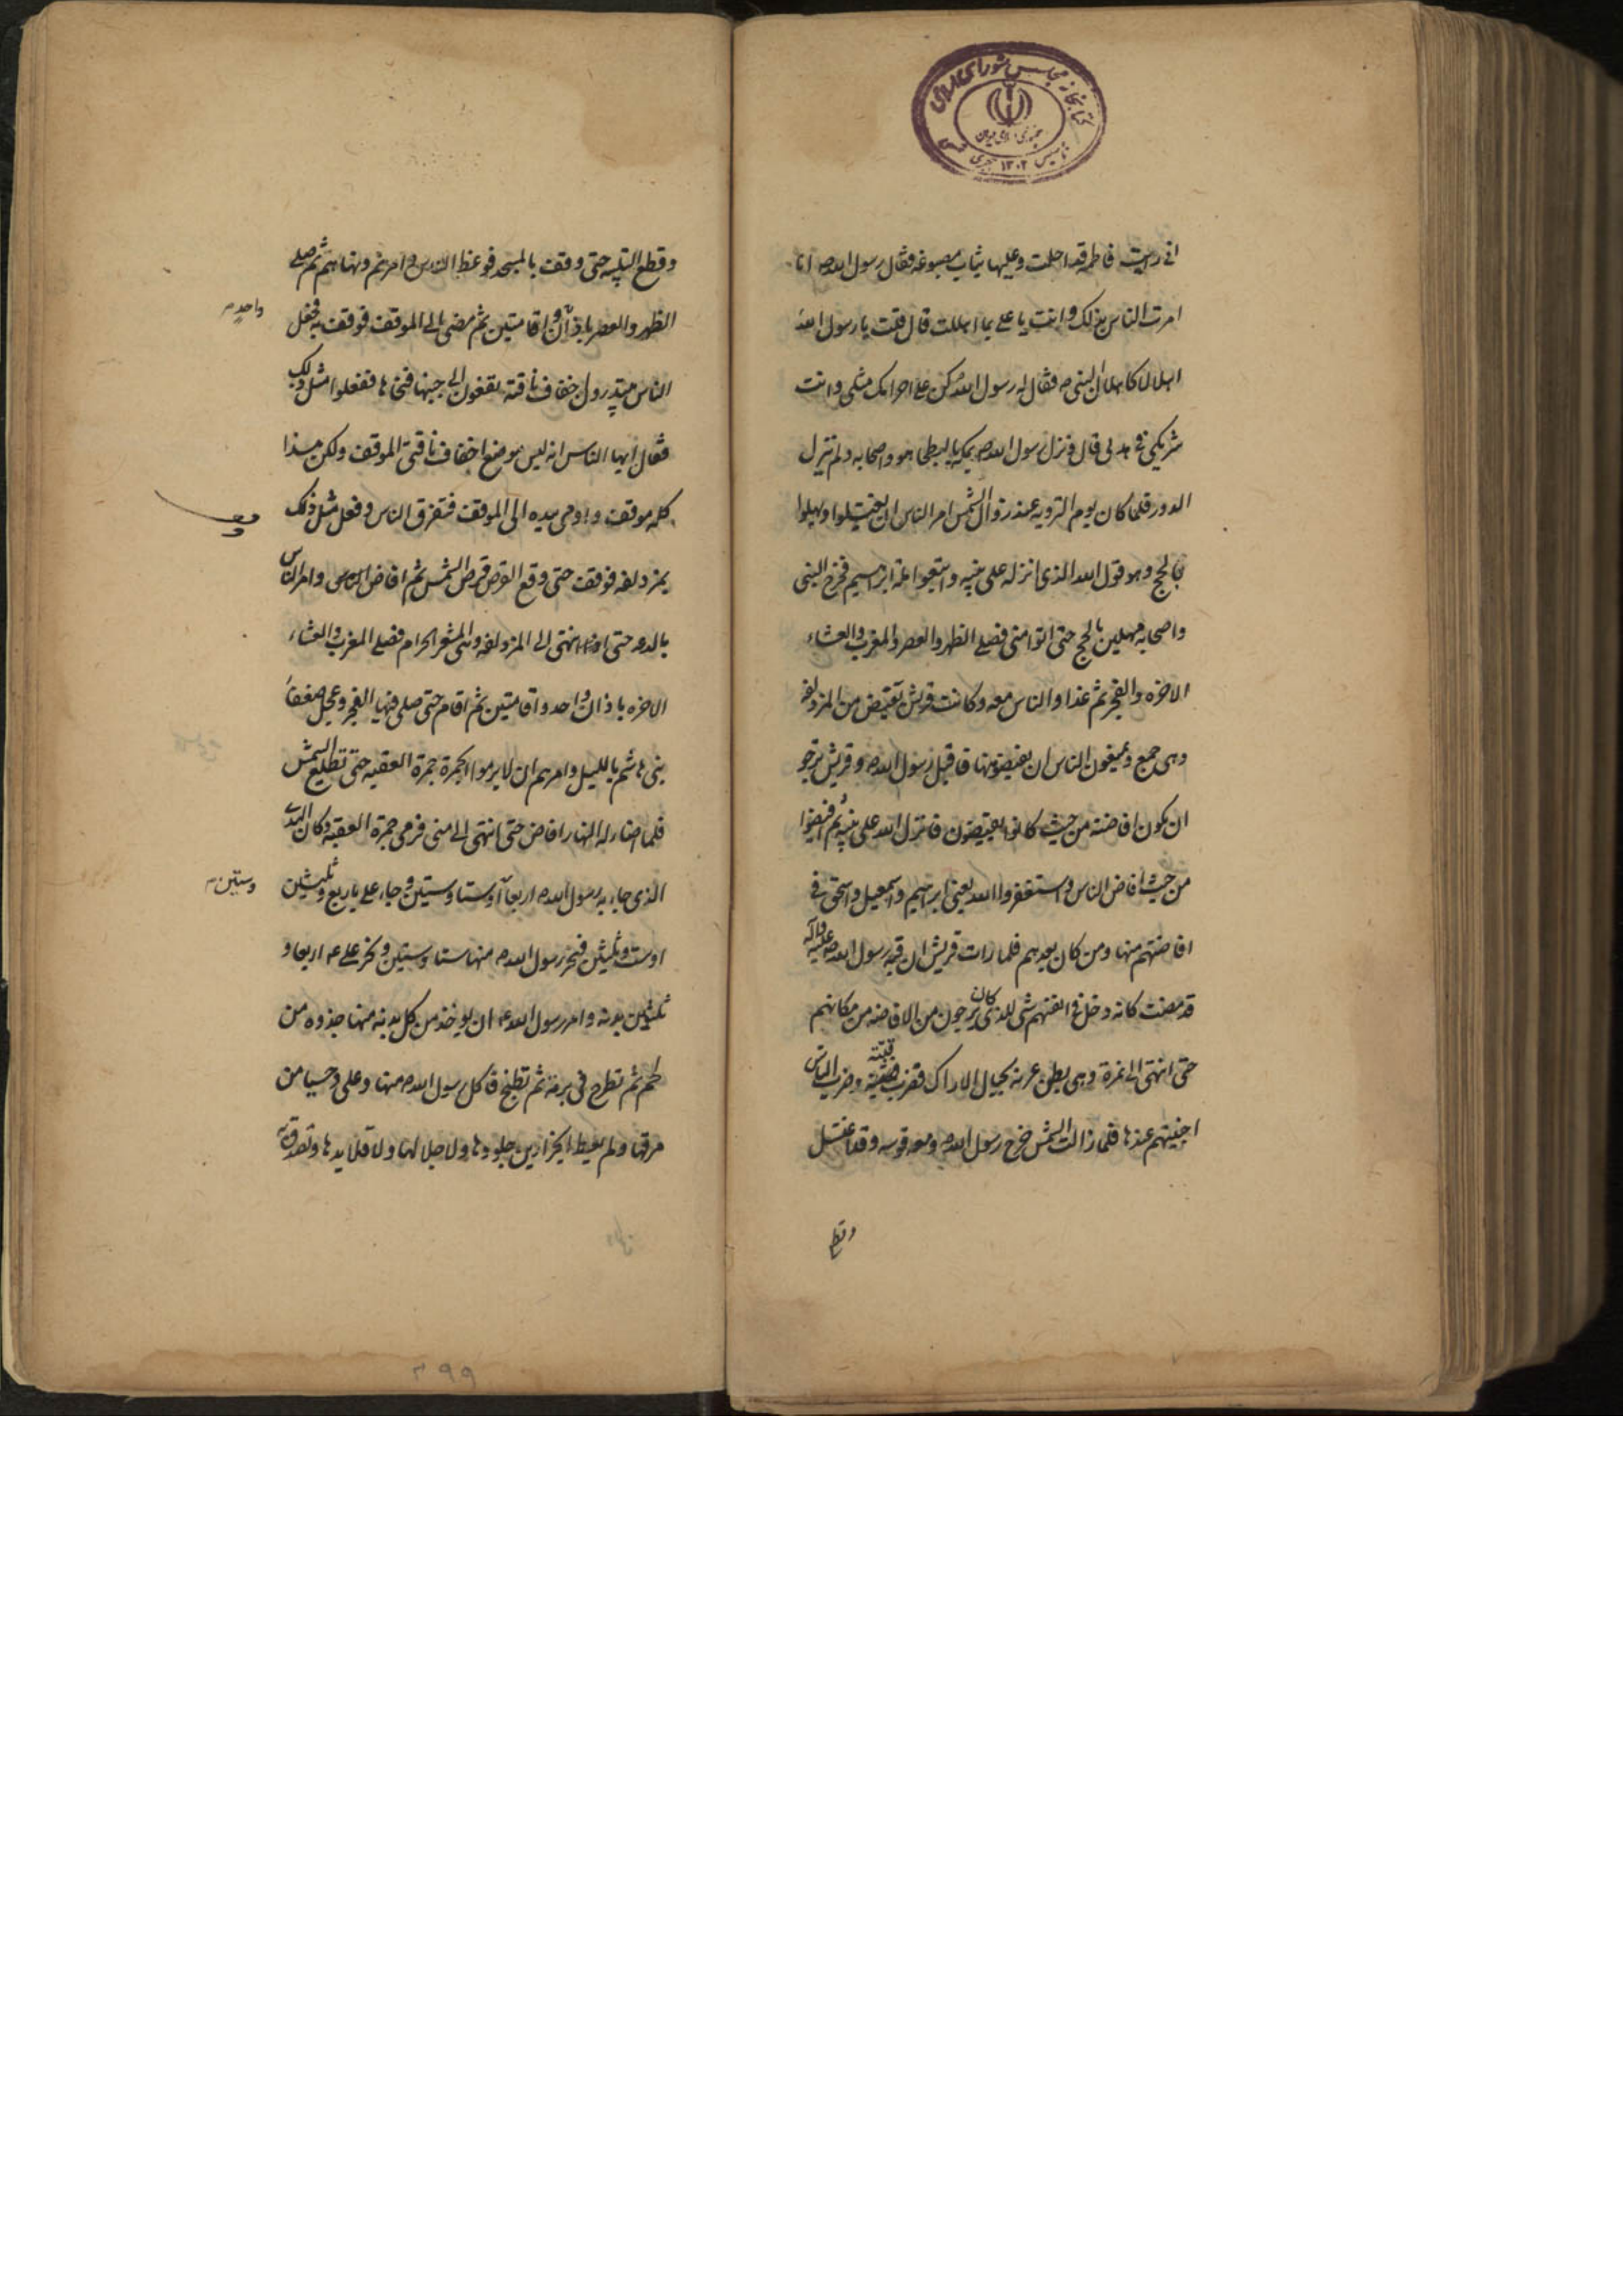 کتابخانه مجلس شورای اسلامی
جمهوری اسلامی ایران
تاسیس ۱۳۰۲ هجری
انی رایت فاطمه قد احلت وعلیها ثیاب مصبوغه فقال رسول الله ص انا
امرت الناس بذلک وانت یا علی بما اهللت قال قلت یا رسول الله
اهلالا کاهلال النبی ص فقال له رسول الله کن علی احرامک مثلی وانت
شریکی فی هدیی قال ونزل رسول الله ص بمکه بالبطحا هو واصحابه ولم تنزل
الدور فلما کان یوم الترویه عند زوال الشمس امر الناس ان یغتسلوا ویهلوا
بالحج وهو قول الله الذی انزله علی نبیه واتبعوا ملة ابراهیم فخرج النبی
واصحابه مهلین بالحج حتی اتوا منی فصلی الظهر والعصر والمغرب والعشاء
الاخره والفجر ثم غدا والناس معه وکانت قریش تفیض من المزدلفه
وهی جمع ویمنعون الناس ان یفیضوا منها فاقبل رسول الله ص وقریش ترجو
ان یکون افاضته من حیث کانوا یفیضون فانزل الله علی نبیه ثم افیضوا
من حیث افاض الناس واستغفروا الله یعنی ابراهیم واسمعیل واسحق فی
افاضتهم منها ومن کان بعدهم فلما رات قریش ان قبه رسول الله صلی علیه واله
قد مضت کانه دخل فی انفسهم شی للذی کان یرجون من الافاضه من مکانهم
حتی انتهی الی نمرة وهی بطن عرنه بحیال الاراک فضرب قبته وضرب الناس
اخبیتهم عندها فلما زالت الشمس خرج رسول الله ص ومعه فرسه وقد اغتسل
وقطع
وقطع التلبیه حتی وقف بالمسجد فوعظ الناس وامرهم ونهاهم ثم صلی
الظهر والعصر باذان واقامتین ثم مضی الی الموقف فوقف به فجعل
واحد
الناس یبتدرون اخفاف ناقته یقفون الی جنبها فنحاها ففعلوا مثل ذلک
فقال ایها الناس انه لیس موضع اخفاف ناقتی الموقف ولکن هذا
کله موقف واومی بیده الی الموقف فتفرق الناس وفعل مثل ذلک
بمزدلفه فوقف حتی وقع القرص قرص الشمس ثم افاض وامر الناس
بالدعه حتی اذا انتهی الی المزدلفه وهی المشعر الحرام فصلی المغرب والعشاء
الاخره باذان واحد واقامتین ثم اقام حتی صلی فیها الفجر وعجل ضعفاء
بنی هاشم باللیل وامرهم ان لا یرموا الجمرة جمرة العقبه حتی تطلع الشمس
فلما اضاء له النهار افاض حتی انتهی الی منی فرمی جمرة العقبه وکان الهدی
الذی جاء به رسول الله ص اربعا او ستا وستین وجاء علی باربع وثلثین
وستین
او ست وثلثین فنحر رسول الله ص منها ستا وستین ونحر علی ع اربعا و
ثلثین بدنه وامر رسول الله ص ان یوخذ من کل بدنه منها جذوه من
لحم ثم تطرح فی برمه ثم تطبخ فاکل رسول الله ص منها وعلی وحسیا من
مرقها ولم یعطیا الجزارین جلودها ولا جلالها ولا قلایدها وتصدق به
۲۹۹